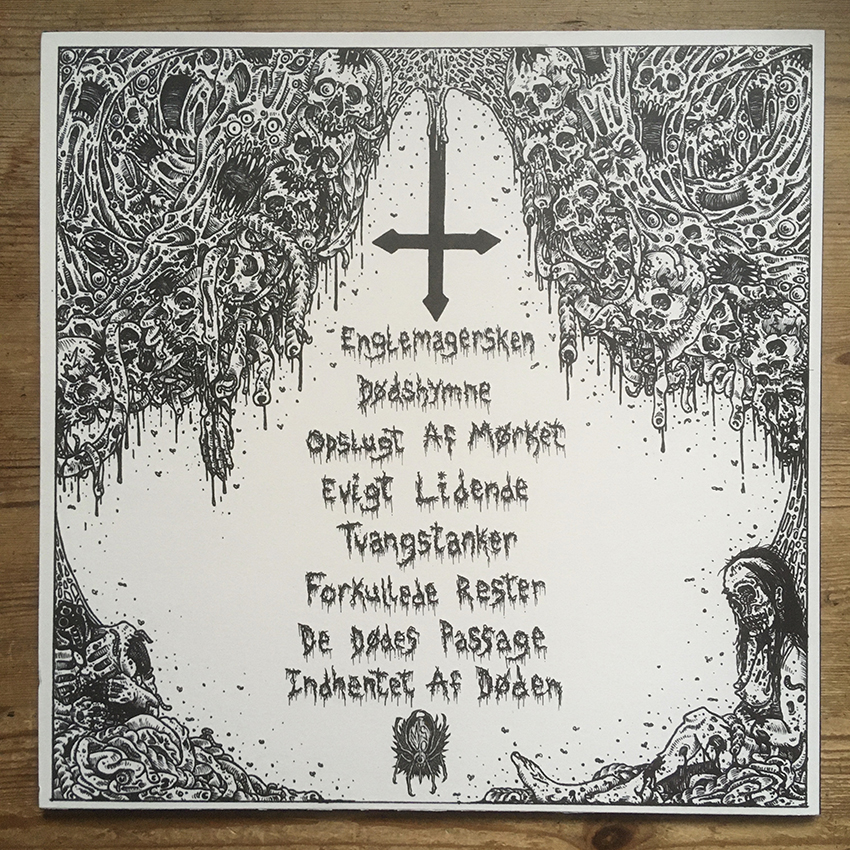 Englemagersken
Dødshymne
Opslugt Af Mørket
Evigt Lidende
Tvangstanker
Forkullede Rester
De Dødes Passage
Indhentet Af Døden